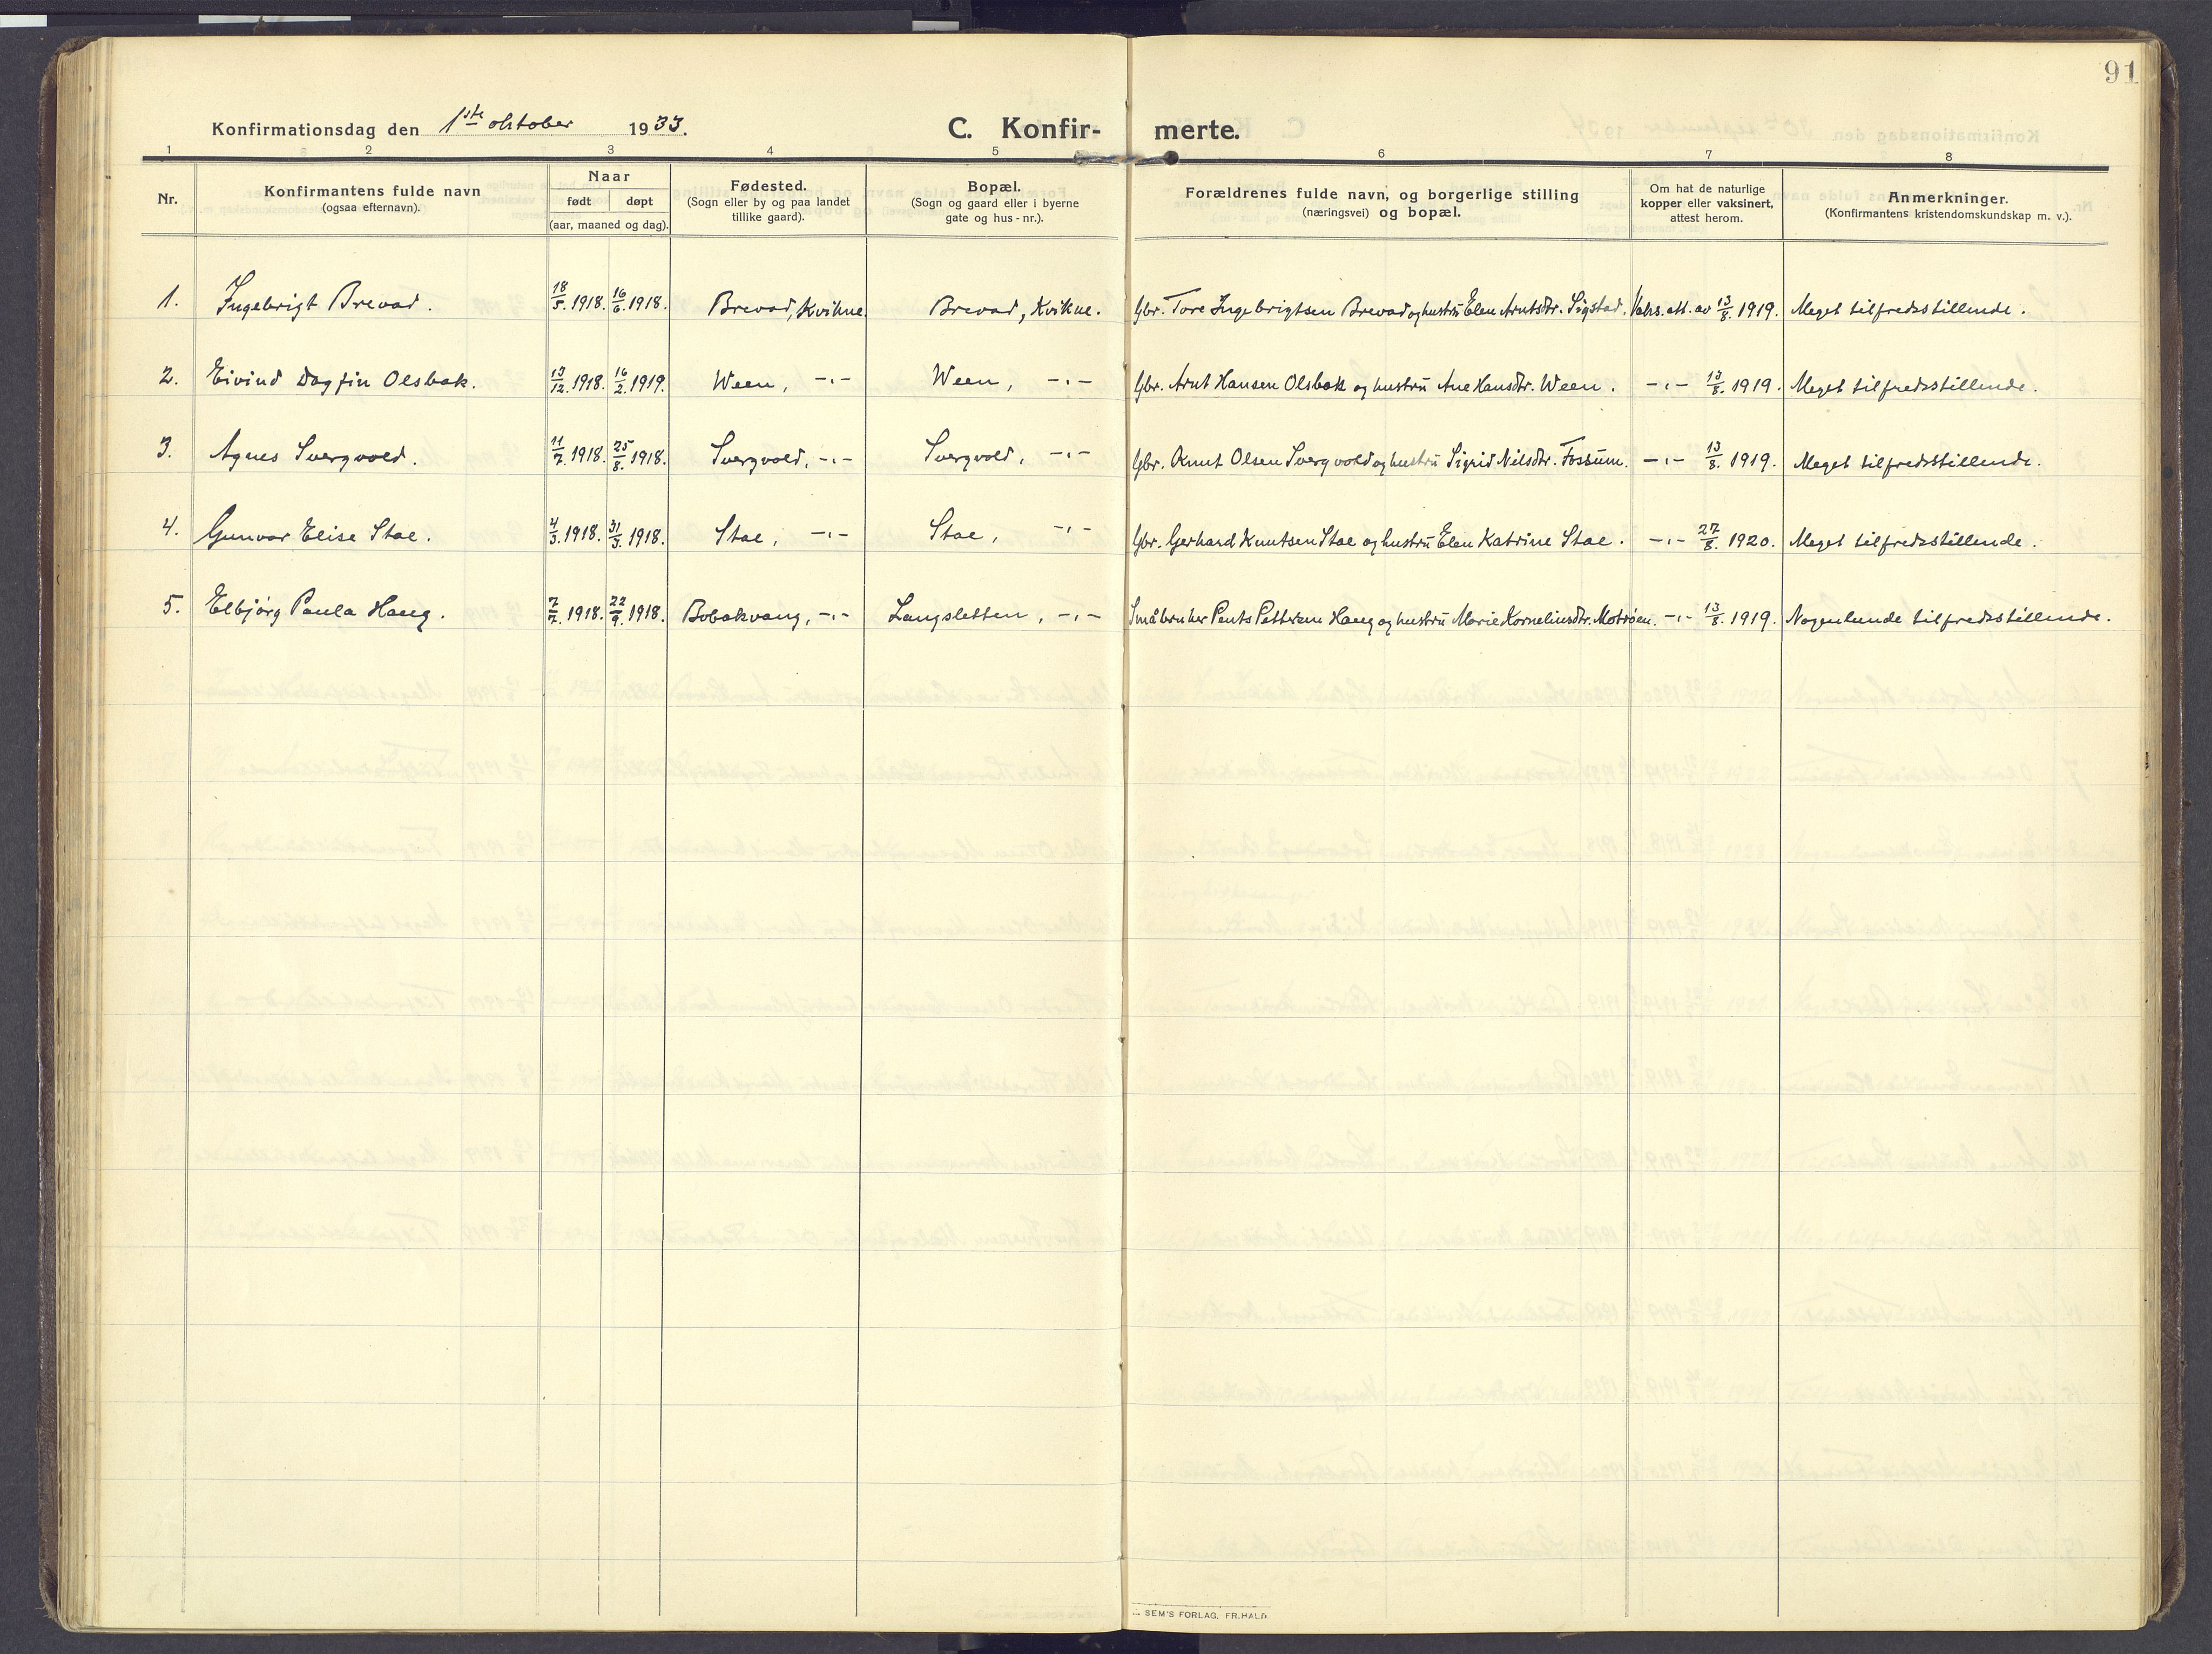 91
Konfirmationsdag den 1ste oktober 1933.
C. Konfir- merte.
1 2 3 4 5 6 7 8
Nr.
Konfirmantens fulde navn
(ogsaa efternavn).
Naar
født døpt
(aar, maaned og dag).
Fødested.
(Sogn eller by og paa landet
tillike gaard).
Bopæl.
(Sogn og gaard eller i byerne
gate og hus-nr.).
Forældrenes fulde navn, og borgerlige stilling
(næringsvei) og bopæl.
Om hat de naturlige
kopper eller vaksinert,
attest herom.
Anmerkninger.
(Konfirmantens kristendomskundskap m. v.).
1. Ingebrigt Brevad. 18/5. 1918. 16/6. 1918. Brevad, Kvikne. Brevad, Kvikne. Gbr. Tore Ingebrigtsen Brevad og hustrù Elen Arntsdtr. Sigstad. Vaks. att. av 13/8. 1919. Meget tilfredsstillende.
2. Eivind Dagfin Olsbak. 13/12. 1918. 16/2. 1919. Ween, -"- Ween, -"- Gbr. Arnt Hansen Olsbak og hustrù Ane Hansdtr. Ween. -"- 13/8. 1919. Meget tilfredsstillende.
3. Agnes Svergvold. 11/7. 1918. 25/8. 1918. Svergvold, -"- Svergvold, -"- Gbr. Knut Olsen Svergvold og hustrù Sigrid Nilsdtr. Fossum. -"- 13/8. 1919. Meget tilfredsstillende.
4. Gunvor Elise Stae. 4/3. 1918. 31/3. 1918. Stae, -"- Stae, -"- Gbr. Gerhard Knutsen Stae og hustrù Elen Katrine Stae. -"- 27/8. 1920. Meget tilfredsstillende.
5. Elbjørg Paula Haug. 7/7. 1918. 22/9. 1918. Bobakvang, -"- Langsletten, -"- Småbruker Pettersen Haug og hustrù Marie Kornelinsdtr. Motrøen. -"- 13/8. 1919. Nogenlunde tilfredsstillende.
SEM'S FORLAG, FR. HALD.